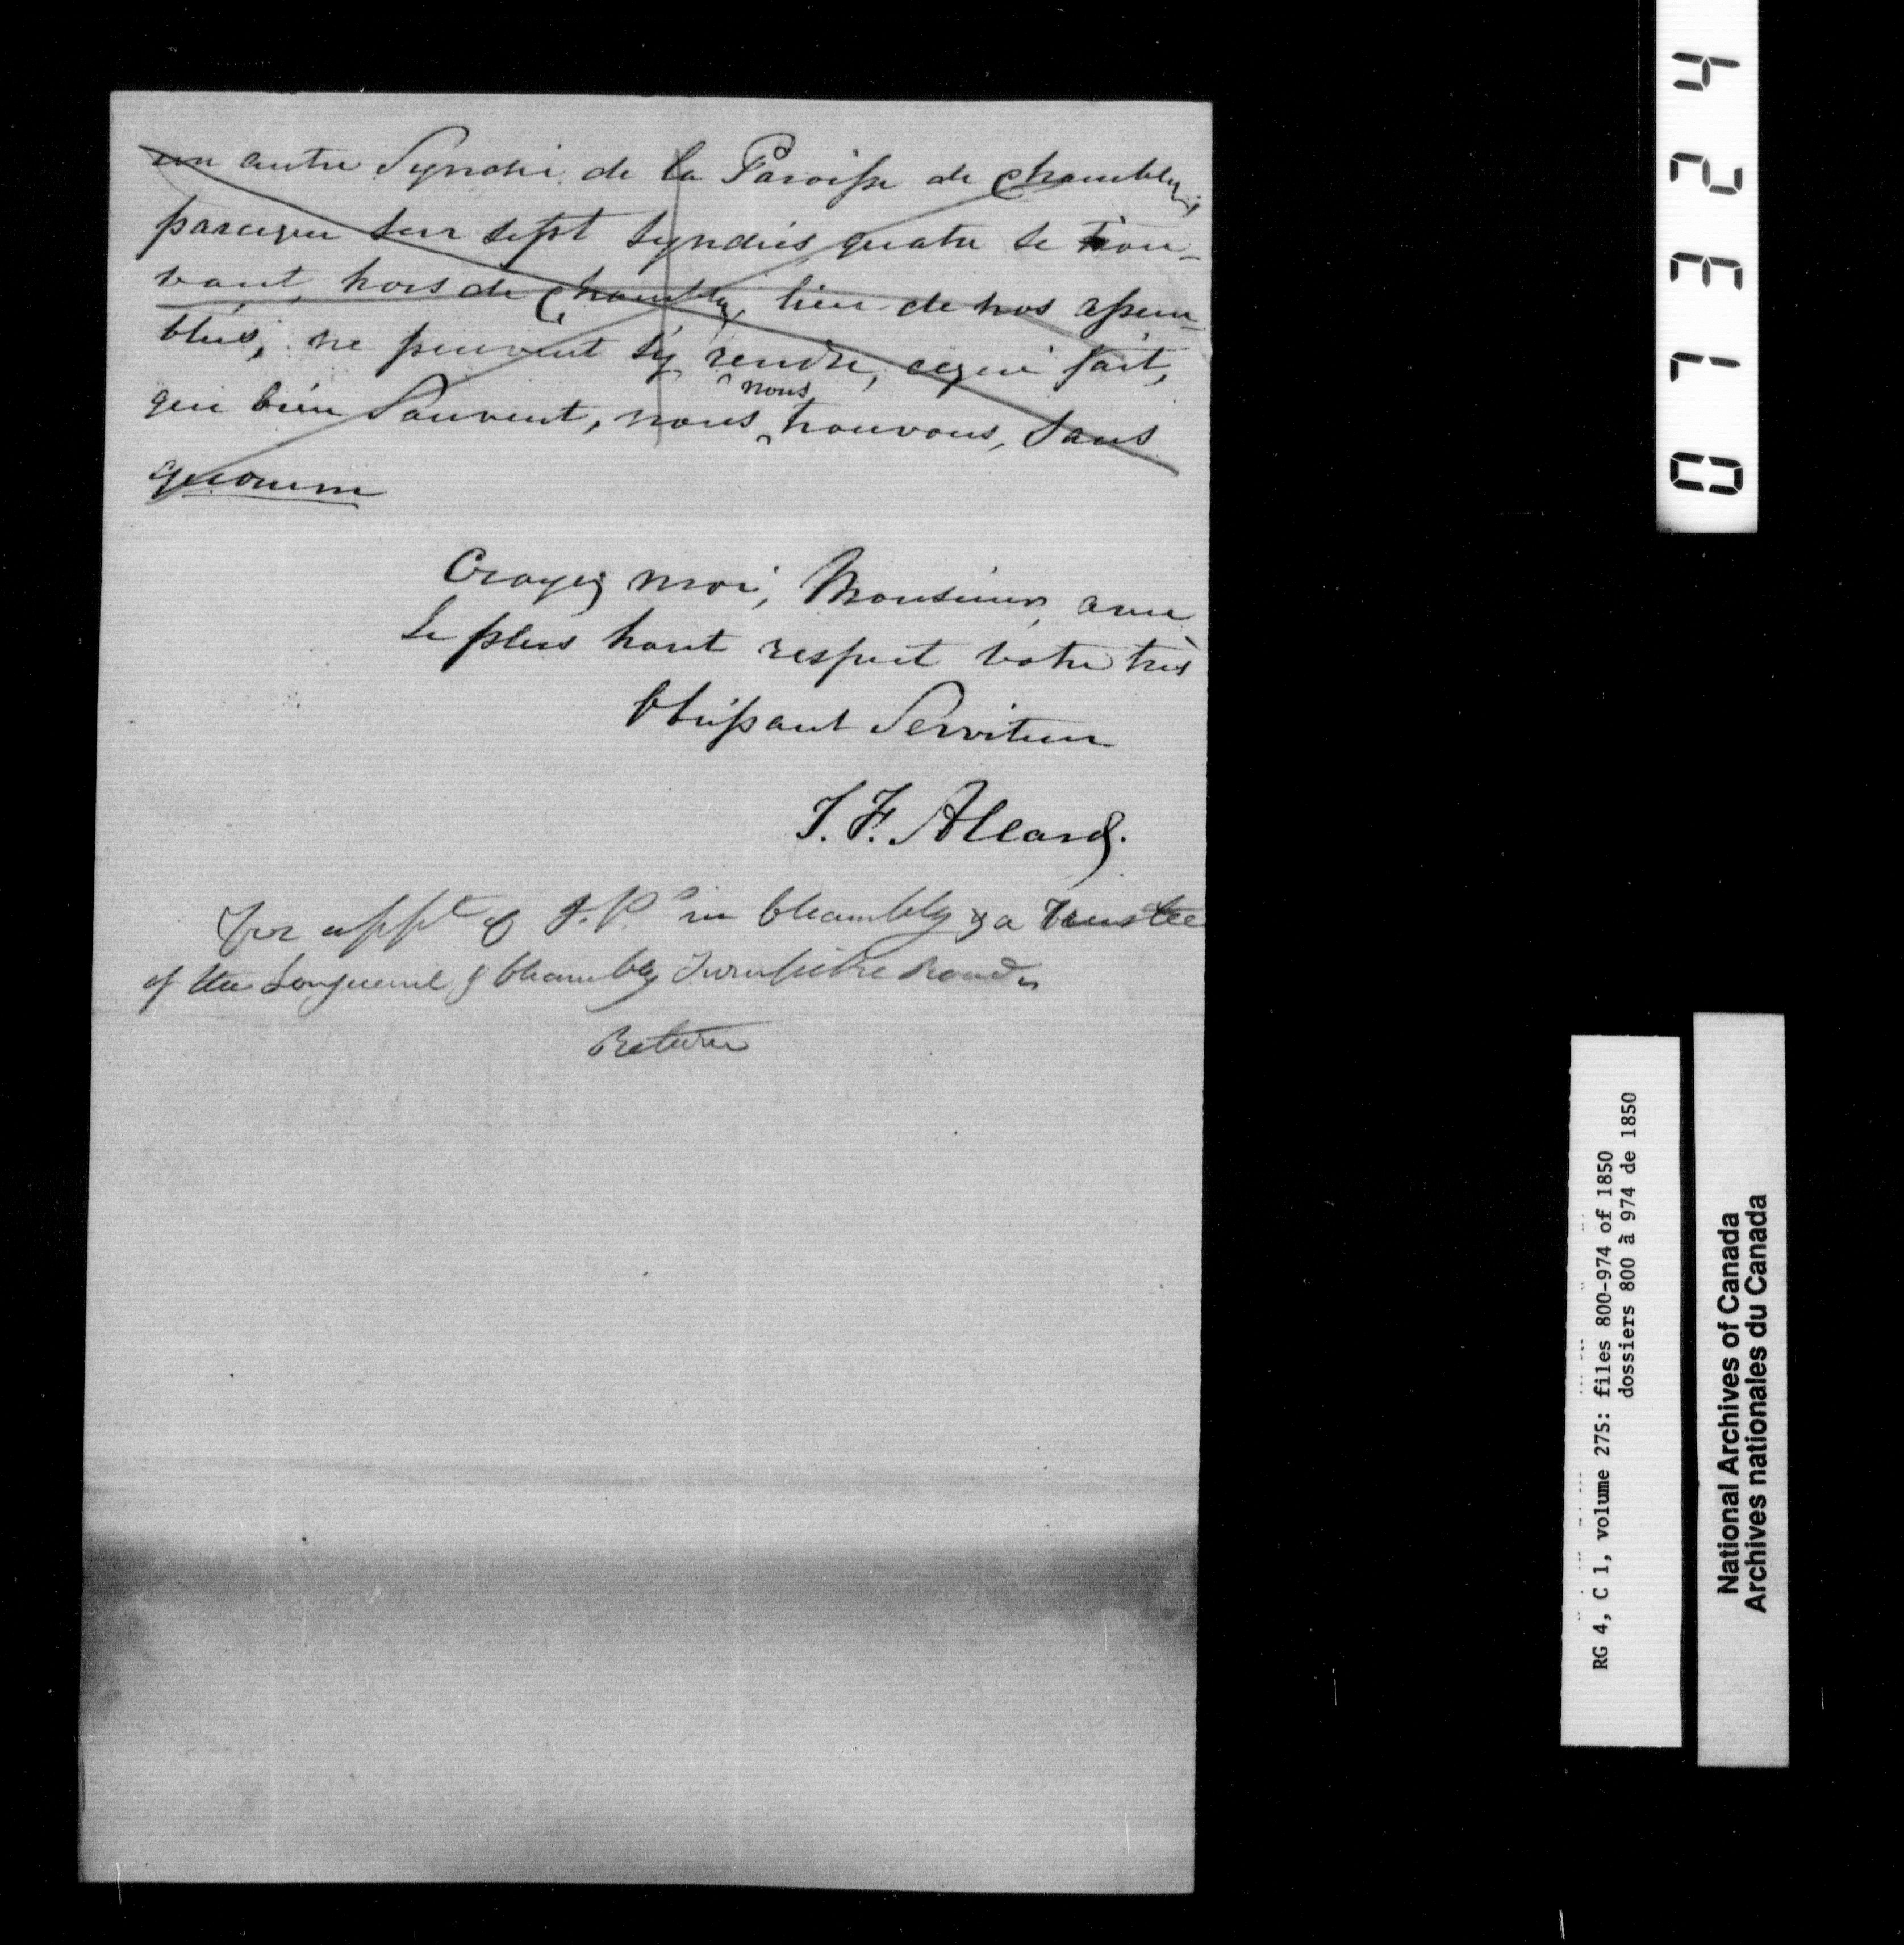 un autre Syndic de la Paroisse de Chambly,
parceque sur sept Syndics quatre se trou-
vant hors de Chambly, lieu de nos assem-
blées, ne peuvent s'y rendre, cequi fait,
que bien Souvent, nous nous trouvons, Sans
quorum
Croyez moi, Monsieur, avec
Le plus haut respect votre très
Obéissant Serviteur
J. F. Allard.
For appt of J.Ps in Chambly & a Trustee
of the Longueuil & Chambly Turnpike Road
Return
07324
RG 4, C 1, volume 275: files 800-974 of 1850
dossiers 800 à 974 de 1850
National Archives of Canada
Archives nationales du Canada